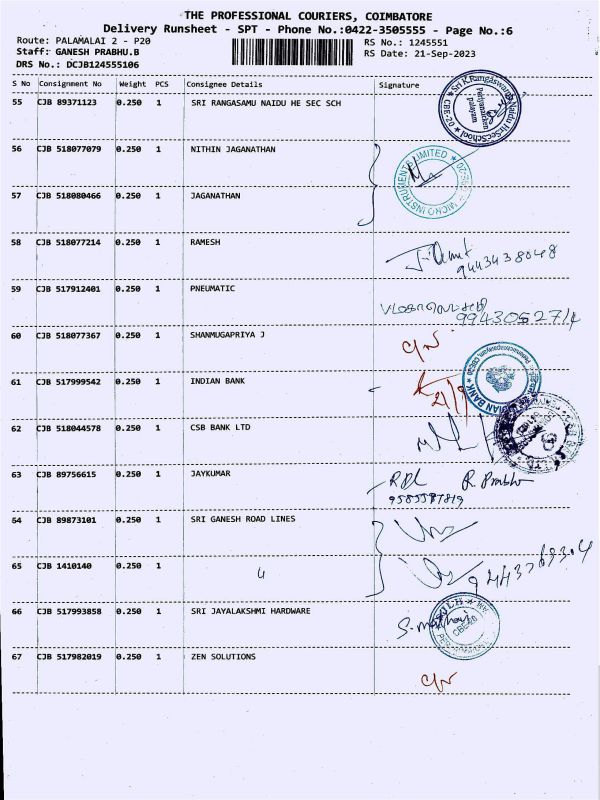 THE PROFESSIONAL COURIERS, COIMBATORE
Delivery Runsheet - SPT - Phone No.:0422-3505555 - Page No.:6
Route: PALAMALAI 2 - P20 RS No.: 1245551
Staff: GANESH PRABHU.B RS Date: 21-Sep-2023
DRS No.: DCJB124555106
S No Consignment No Weight PCS Consignee Details Signature
55 CJB 89371123 0.250 1 SRI RANGASAMU NAIDU HE SEC SCH
56 CJB 518077079 0.250 1 NITHIN JAGANATHAN
57 CJB 518080466 0.250 1 JAGANATHAN
58 CJB 518077214 0.250 1 RAMESH
9443438048
59 CJB 517912401 0.250 1 PNEUMATIC
60 CJB 518077367 0.250 1 SHANMUGAPRIYA J
61 CJB 517999542 0.250 1 INDIAN BANK
62 CJB 518044578 0.250 1 CSB BANK LTD
63 CJB 89756615 0.250 1 JAYKUMAR
R. Prabhu
64 CJB 89873101 0.250 1 SRI GANESH ROAD LINES
65 CJB 1410140 0.250 1
66 CJB 517993858 0.250 1 SRI JAYALAKSHMI HARDWARE
67 CJB 517982019 0.250 1 ZEN SOLUTIONS